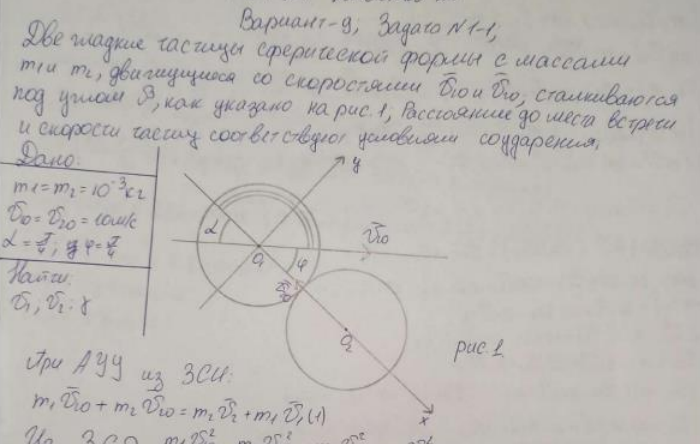 Вариант-9; Задача N1-1;
Две гладкие частицы сферической формы с массами
m1 и m2, движущиеся со скоростями v̄10 и v̄20, сталкиваются
под углом β, как указано на рис. 1, Расстояние до места встречи
и скорости частиц соответствуют условиям соударения,
Дано:
m1=m2=10⁻³кг
v10=v20=10м/с
α=π/4; φ=π/4
Найти:
v̄1; v̄2; γ
y
α
v̄10
O1
φ
v̄20
O2
x
рис.1
При АУУ из ЗСИ:
m1v̄10+m2v̄20=m2v̄2+m1v̄1(1)